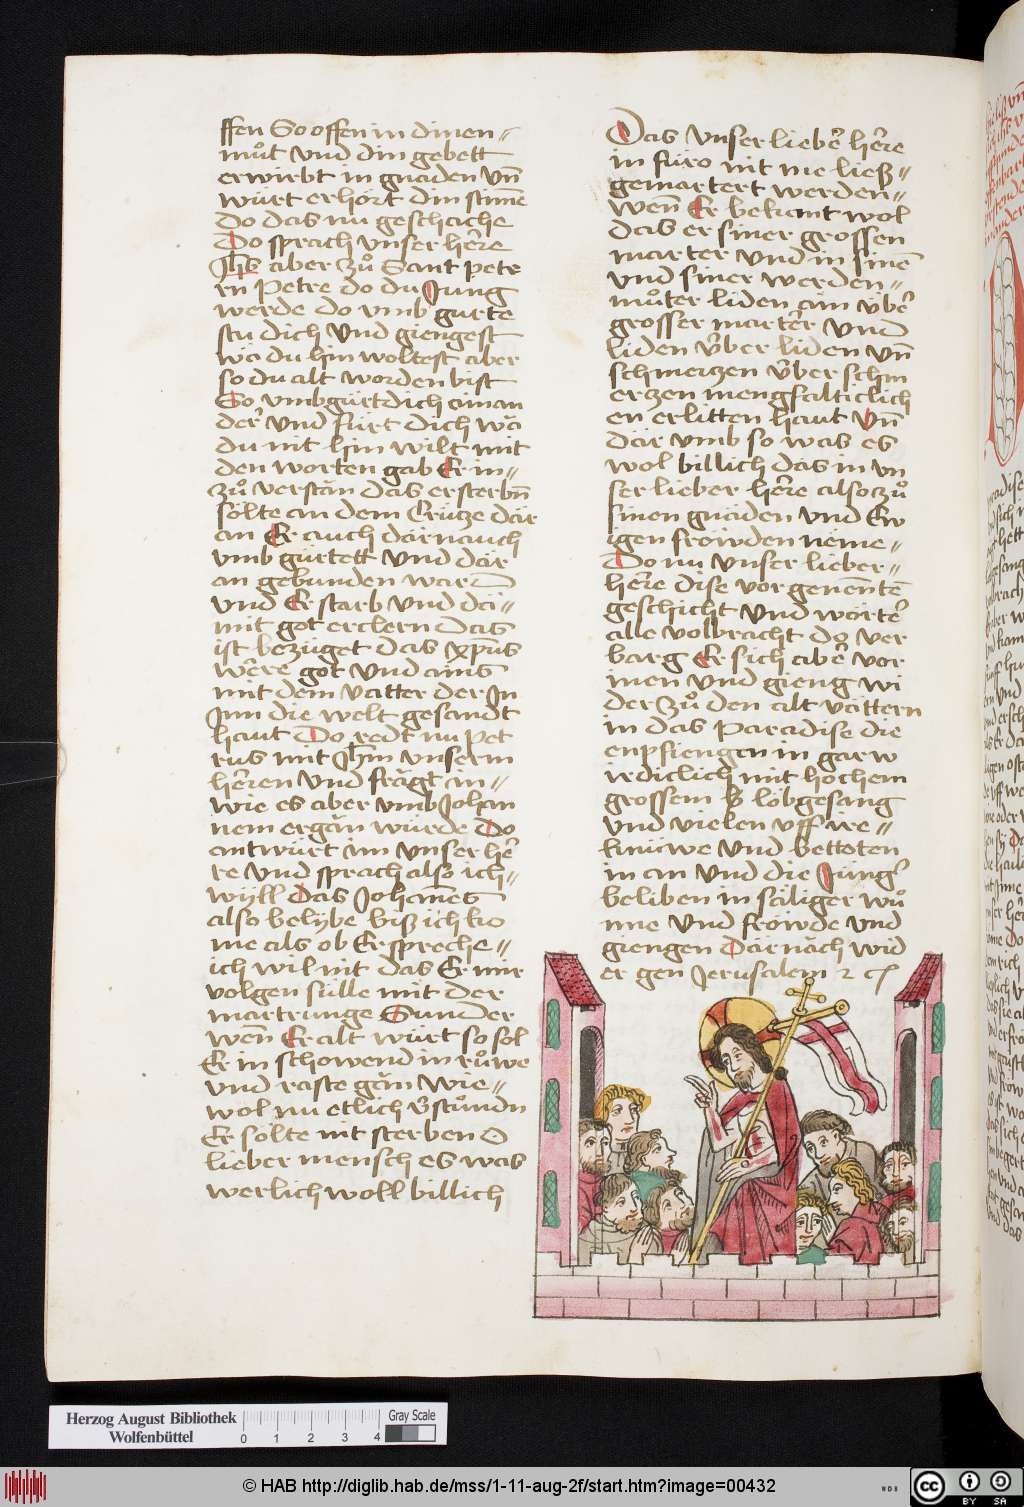 ffen So offen in dinen=
muͦt vnd din gebett
erwirbt in gnaden vn̄
würt erhört din stim̄e
do das nu geschache
Do sprach vnser her̄e
Jh̄s aber zuͦ Sant petr
rn Petre do du Jung
werde do vmb gurte
stu dich vnd giengest
wa du hin woltest aber
so du alt worden bist
So vmbgürt dich ainan
der vnd fürt dich wa
du nit hin wilt mit
den worten gab Er in=
zuͦ verstan das er sterbn̄
sölte an dem Crütze dar
an Er auch darnauch
vmb gürtett vnd dar
an gebunden ward
vnd Er starb vnd da=
mit got erclern das
ist bezüget das xp̄us
were got vnd ains
mit dem vatter der in
Jnn die welt gesandt
haut Do redt nu pet
rus mit Jh̄m vnserm
her̄en vnd frägt in=
wie es aber vmb Johan
nem ergan würde do
antwürt im vnser her̄
re vnd sprach also ich=
wÿll das Johan̄es
also belybe biß ich ko
me als ob Er spreche=
ich wil nit das Er mir
volgen sülle mit der
martrunge Sunder
wen̄ Er alt würt so sol
Er in schowend in ruͦwe
vnd raste gan wie=
wol nu etlich v̄stuͦndn
Er sölte nit sterben O
lieber mensch es was
werlich woll billich
Das vnser lieber her̄e
in füro nit me ließ=
gemartert werden=
wen̄ Er bekant wol
das er siner grossen
marter vnd in sinen̄
vnd siner werden=
muͦter liden ain über
grosser marter vnd
liden über liden vn̄
schmerzen über schm
erzen mengfalticlich
en erlitten haut vn̄
dar vmb so was es
wol billich das in vn
ser lieber her̄e also zuͦ
sinen gnäden vnd Ew
igen fröwden neme=
Do nu vnser lieber=
her̄e dise vorgenen̄ten
geschicht vnd wörter
alle volbracht do ver
barg Er sich aber vor
inen vnd gieng wi
der zuͦ den alt vättern
in das Paradise die
enpfiengen in gar w
irdiclich mit hochem
grossem lobgesang
vnd vielen vff ire=
knüwe vnd bettoten
in an vnd die Jünger
beliben in säliger wuͦ
nne vnd fröwde vnd
giengen Darnäch wid
er gen Jerusalem
Herzog August Bibliothek
Wolfenbüttel
0 1 2 3 4
Gray Scale
© HAB http://diglib.hab.de/mss/1-11-aug-2f/start.htm?image=00432
WDB
cc BY SA